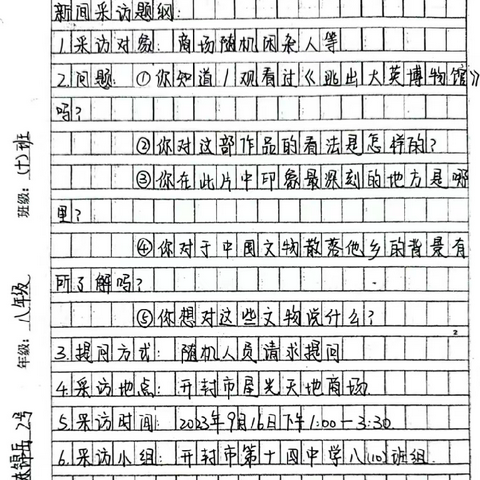 新闻采访题纲:
1.采访对象: 商场随机闲杂人等
2.问题: ①你知道/观看过《逃出大英博物馆》
吗?
②你对这部作品的看法是怎样的?
③你在此片中印象最深刻的地方是哪
里?
④你对于中国文物散落他乡的背景有
所了解吗?
⑤你想对这些文物说什么?
3.提问方式: 随机人员请求提问
4.采访地点: 开封市星光天地商场.
5.采访时间: 2023年9月16日下午1:00—3:30.
6.采访小组: 开封市第十四中学八(10)班组.
班级:(十)班
年级:八年级
2号